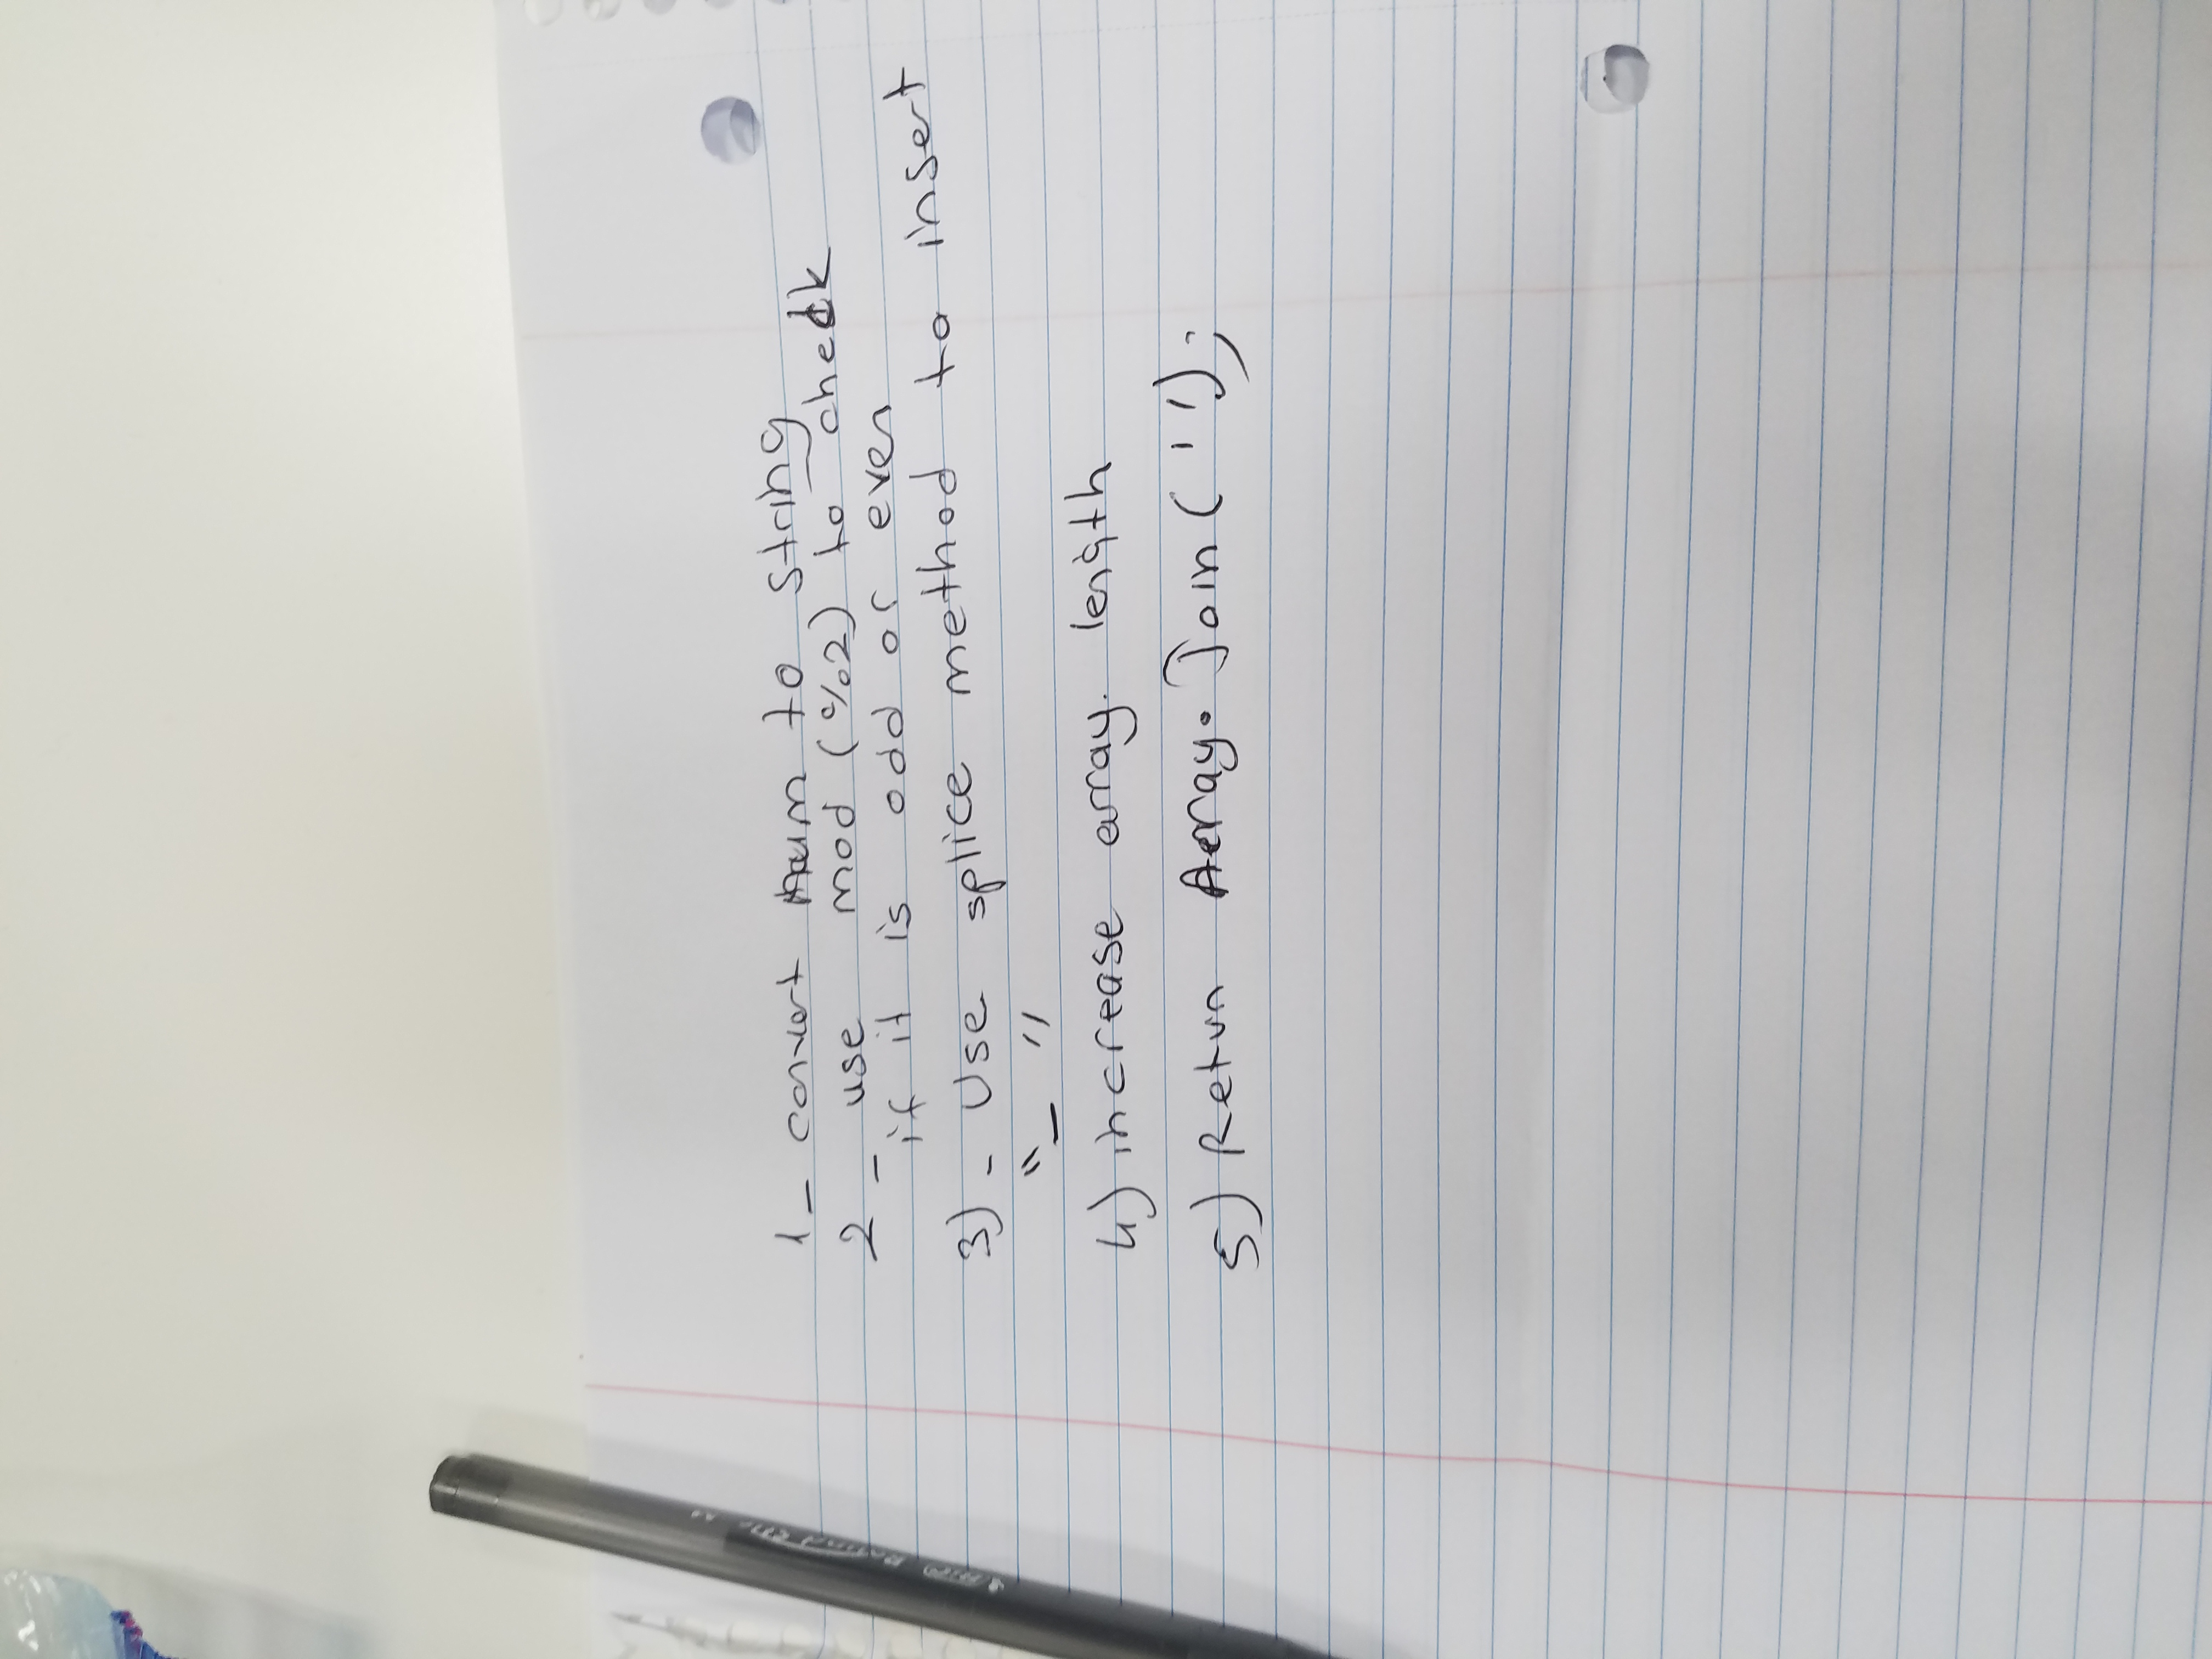 1 - convert num to string
2 - use mod (%2) to check
if it is odd or even
3) - Use splice method to insert
"-"
4) increase array. length
5) Retun Array. Join ('');